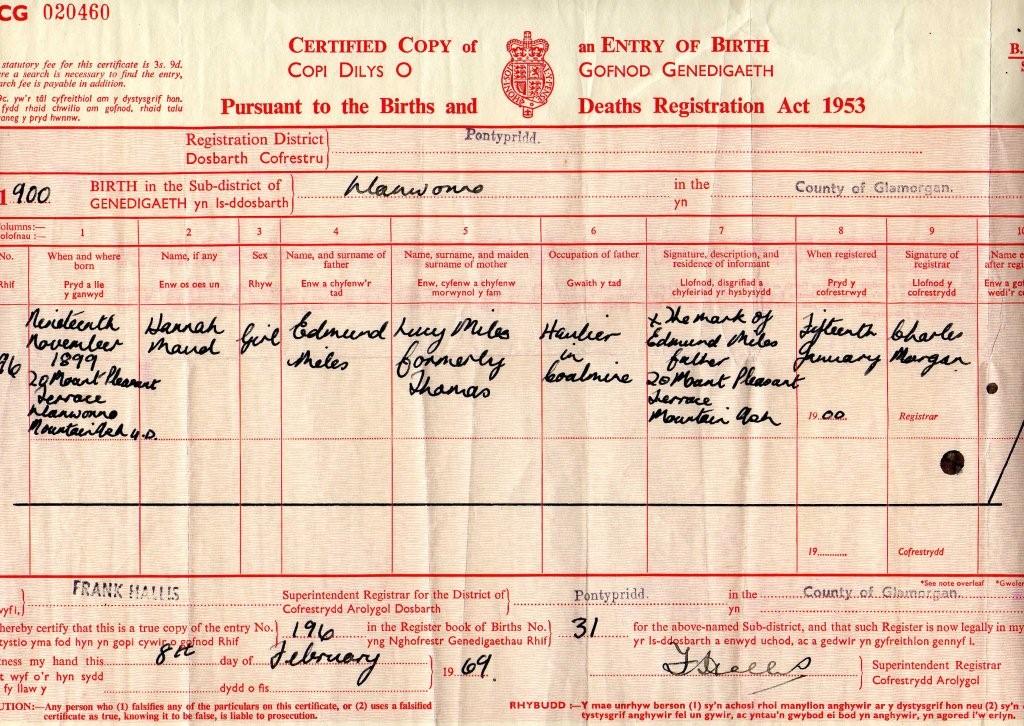 CG 020460
CERTIFIED COPY of an ENTRY OF BIRTH
COPI DILYS O GOFNOD GENEDIGAETH
Pursuant to the Births and Deaths Registration Act 1953
B.
statutory fee for this certificate is 3s. 9d.
re a search is necessary to find the entry,
arch fee is payable in addition.
9c. yw'r tâl cyfreithiol am y dystysgrif hon.
fydd rhaid chwilio am gofnod, rhaid talu
aneg y pryd hwnnw.
Registration District Pontypridd.
Dosbarth Cofrestru
1900 BIRTH in the Sub-district of Llanwonno in the County of Glamorgan.
GENEDIGAETH yn Is-ddosbarth yn
olumns:— 1 2 3 4 5 6 7 8 9 10
olofnau:—
No. When and where born Name, if any Sex Name, and surname of father Name, surname, and maiden surname of mother Occupation of father Signature, description, and residence of informant When registered Signature of registrar
Rhif Pryd a lle y ganwyd Enw os oes un Rhyw Enw a chyfenw'r tad Enw, cyfenw a chyfenw morwynol y fam Gwaith y tad Llofnod, disgrifiad a chyfeiriad yr hysbysydd Pryd y cofrestrwyd Llofnod y cofrestrydd
Nineteenth Hannah Girl Edmund Lucy Miles Haulier X The mark of Fifteenth Charles
November Maud Miles formerly in Edmund Miles January Morgan
96 1899 Thomas Coalmine father
20 Mount Pleasant 20 Mount Pleasant
Terrace Terrace
Llanwonno Mountain Ash 1900. Registrar
Mountain Ash U.D.
19 Cofrestrydd
*See note overleaf
FRANK HALLIS Superintendent Registrar for the District of Pontypridd. in the County of Glamorgan.
wyf i, Cofrestrydd Arolygol Dosbarth yn
hereby certify that this is a true copy of the entry No. 196 in the Register book of Births No. 31 for the above-named Sub-district, and that such Register is now legally in my
tystio yma fod hyn yn gopi cywir o gofnod Rhif yng Nghofrestr Genedigaethau Rhif yr Is-ddosbarth a enwyd uchod, ac a gedwir yn gyfreithlon gennyf i.
ness my hand this 8th day of February 1969. Superintendent Registrar
t wyf o'r hyn sydd
fy llaw y dydd o fis Cofrestrydd Arolygol
UTION:—Any person who (1) falsifies any of the particulars on this certificate, or (2) uses a falsified
certificate as true, knowing it to be false, is liable to prosecution.
RHYBUDD :—Y mae unrhyw berson (1) sy'n achosi rhoi manylion anghywir ar y dystysgrif hon neu (2) sy'n
tystysgrif anghywir fel un gywir, ac yntau'n gwybod ei bod yn anghywir, yn agored i'w erlyn.